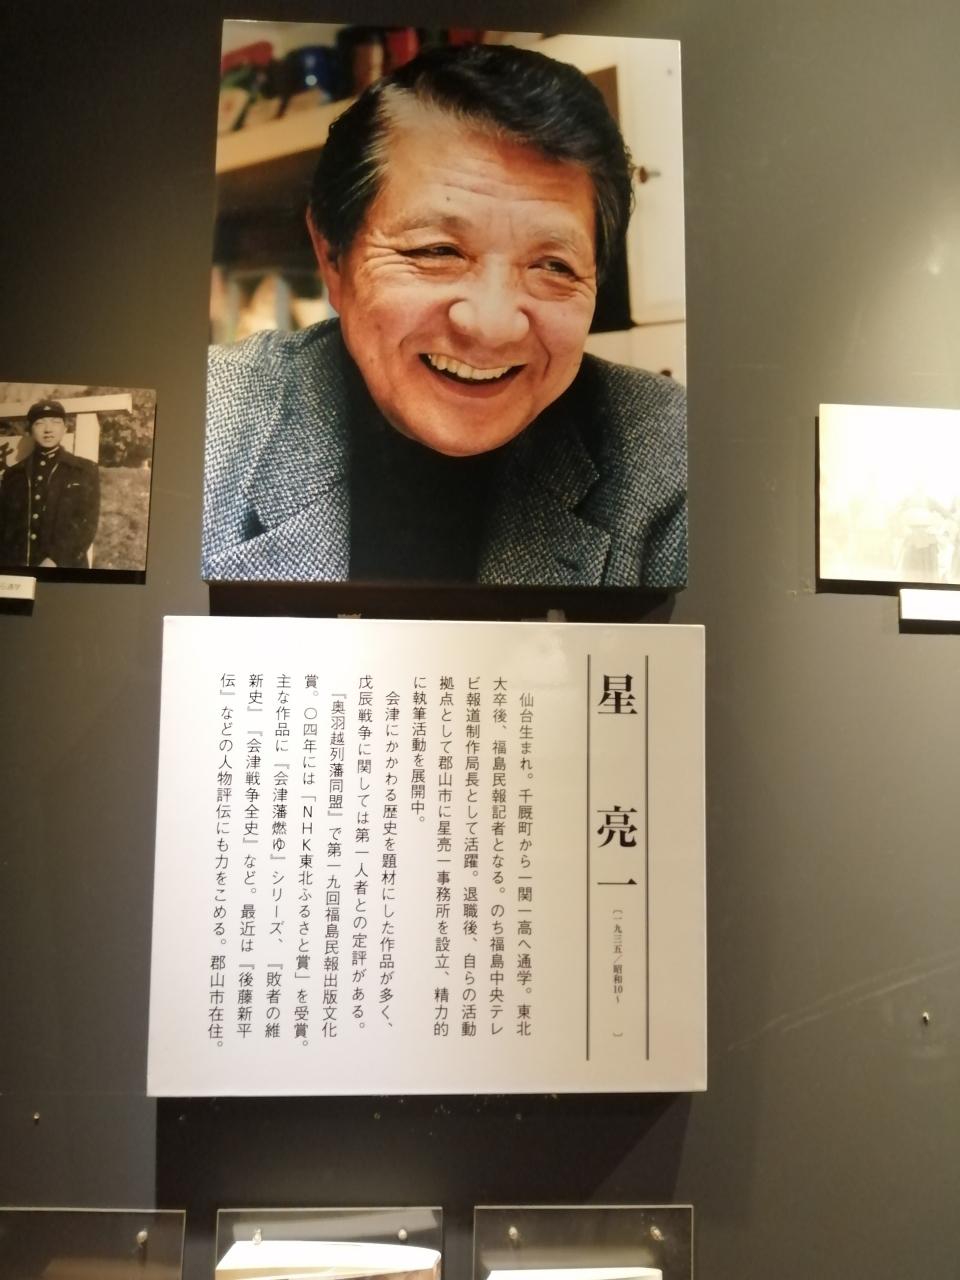 星 亮一
〔一九三五／昭和10～ 〕
仙台生まれ。千厩町から一関一高へ通学。東北
大卒後、福島民報記者となる。のち福島中央テレ
ビ報道制作局長として活躍。退職後、自らの活動
拠点として郡山市に星亮一事務所を設立、精力的
に執筆活動を展開中。
会津にかかわる歴史を題材にした作品が多く、
戊辰戦争に関しては第一人者との定評がある。
『奥羽越列藩同盟』で第一九回福島民報出版文化
賞。〇四年には「ＮＨＫ東北ふるさと賞」を受賞。
主な作品に『会津藩燃ゆ』シリーズ、『敗者の維
新史』『会津戦争全史』など。最近は『後藤新平
伝』などの人物評伝にも力をこめる。郡山市在住。